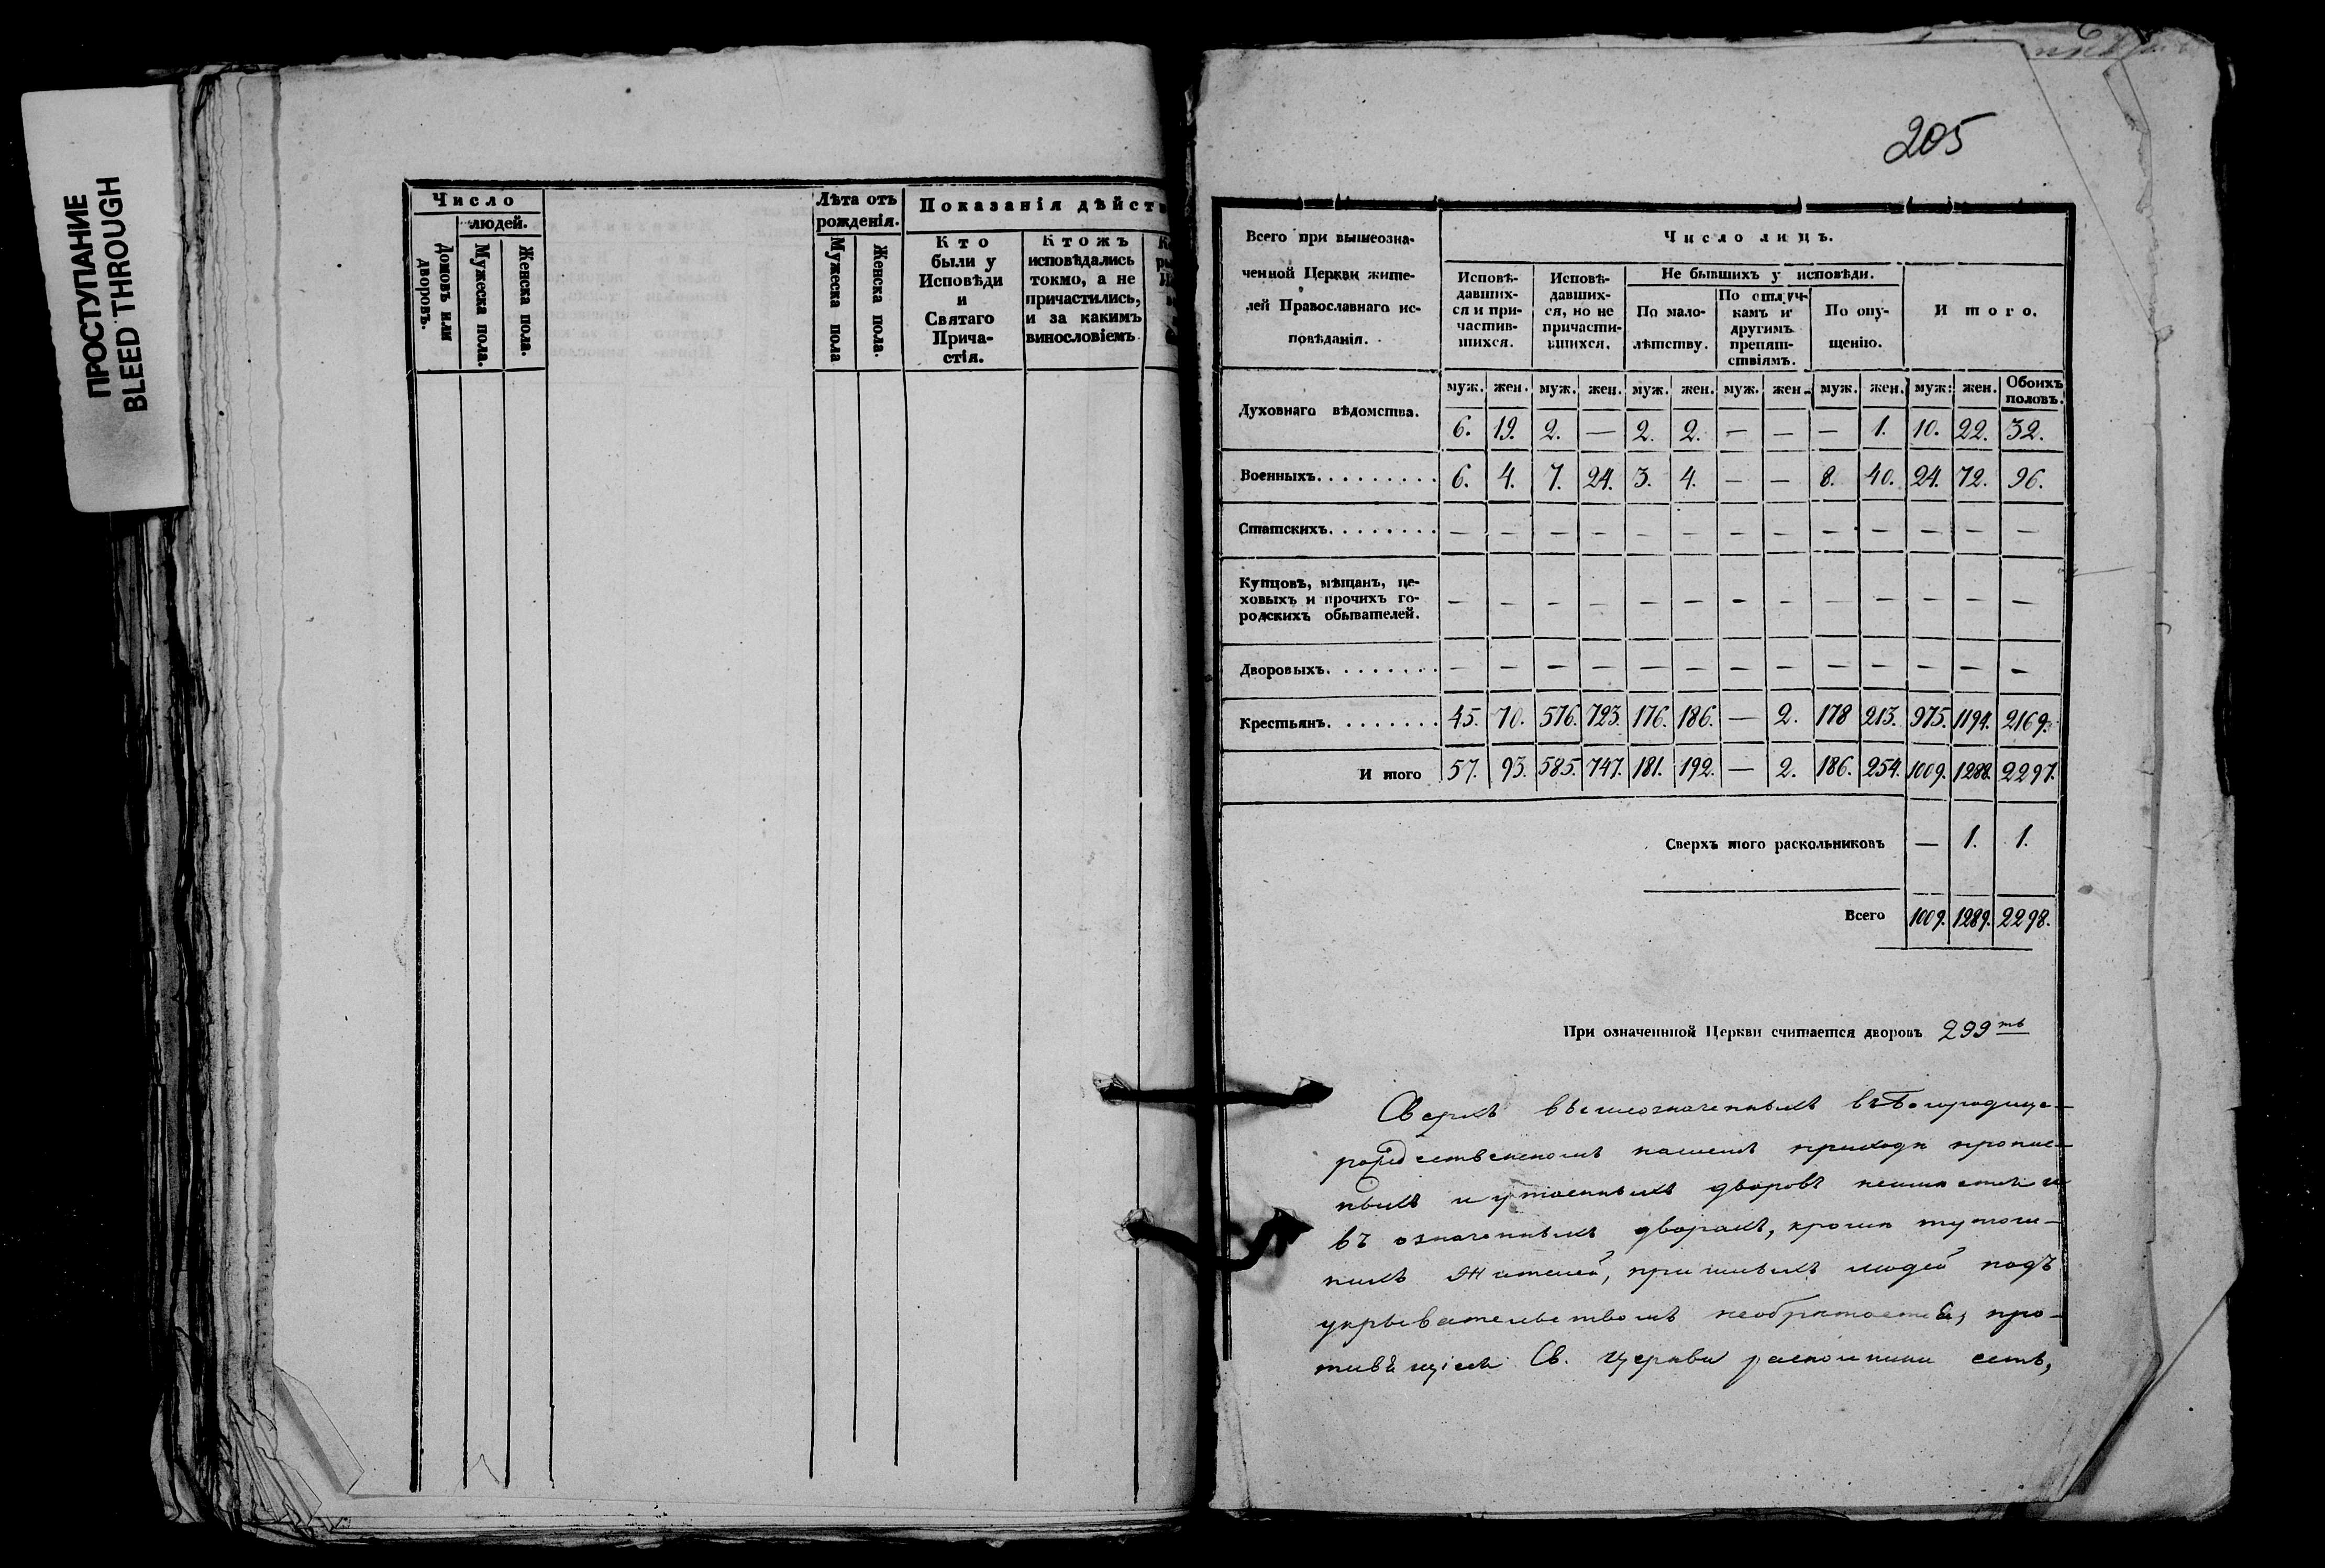 ПРОСТУПАНИЕ
BLEED THROUGH
Число
людей.
Домовъ или дворовъ.
Мужеска пола.
Женска пола.
Лѣта отъ
рожденія.
Мужеска пола
Женска пола.
Показанія дѣйств
Кто
были у
Исповѣди
и
Святаго
Прича-
стія.
Ктожъ
исповѣдались
токмо, а не
причастились,
и за какимъ
винословіемъ
205
Всего при вышеозна-
ченной Церкви жите-
лей Православнаго ис-
повѣданія.
Число лицъ.
Исповѣ-
давших-
ся и при-
частив-
шихся.
Исповѣ-
давших-
ся, но не
причасти-
вшихся.
Не бывшихъ у исповѣди.
По мало-
лѣтству.
По отлуч-
камъ и
другимъ
препят-
ствіямъ.
По опу-
щенію.
И того.
муж. жен. муж. жен. муж. жен. муж. жен. муж. жен. муж: жен. Обоихъ половъ.
Духовнаго вѣдомства. 6. 19. 2. — 2. 2. — — — 1. 10. 22. 32.
Военныхъ. . . . . . . . . 6. 4. 7. 24. 3. 4. — — 8. 40. 24. 72. 96.
Статскихъ. . . . . . . . — — — — — — — — — — — — —
Купцовъ, мѣщанъ, це-
ховыхъ и прочихъ го-
родскихъ обывателей. — — — — — — — — — — — — —
Дворовыхъ. . . . . . . . — — — — — — — — — — — — —
Крестьянъ. . . . . . . . 45. 70. 576. 723. 176. 186. — 2. 178 213. 975. 1194. 2169.
И того 57. 93. 585. 747. 181. 192. — 2. 186. 254. 1009. 1288. 2297.
Сверхъ того раскольниковъ — 1. 1.
Всего 1009. 1289. 2298.
При означенной Церкви считается дворовъ 299 ть
Сверхъ вышеозначенныхъ въ Богородице-
рождественскомъ нашемъ приходѣ пропис-
ныхъ и утаенныхъ дворовъ неимѣется и
въ означенныхъ дворахъ, кромѣ тутош-
нихъ жителей, пришлыхъ людей подъ
укрывательствомъ необрѣтается, про-
тивящіеся Св. Церкви раскольники есть,